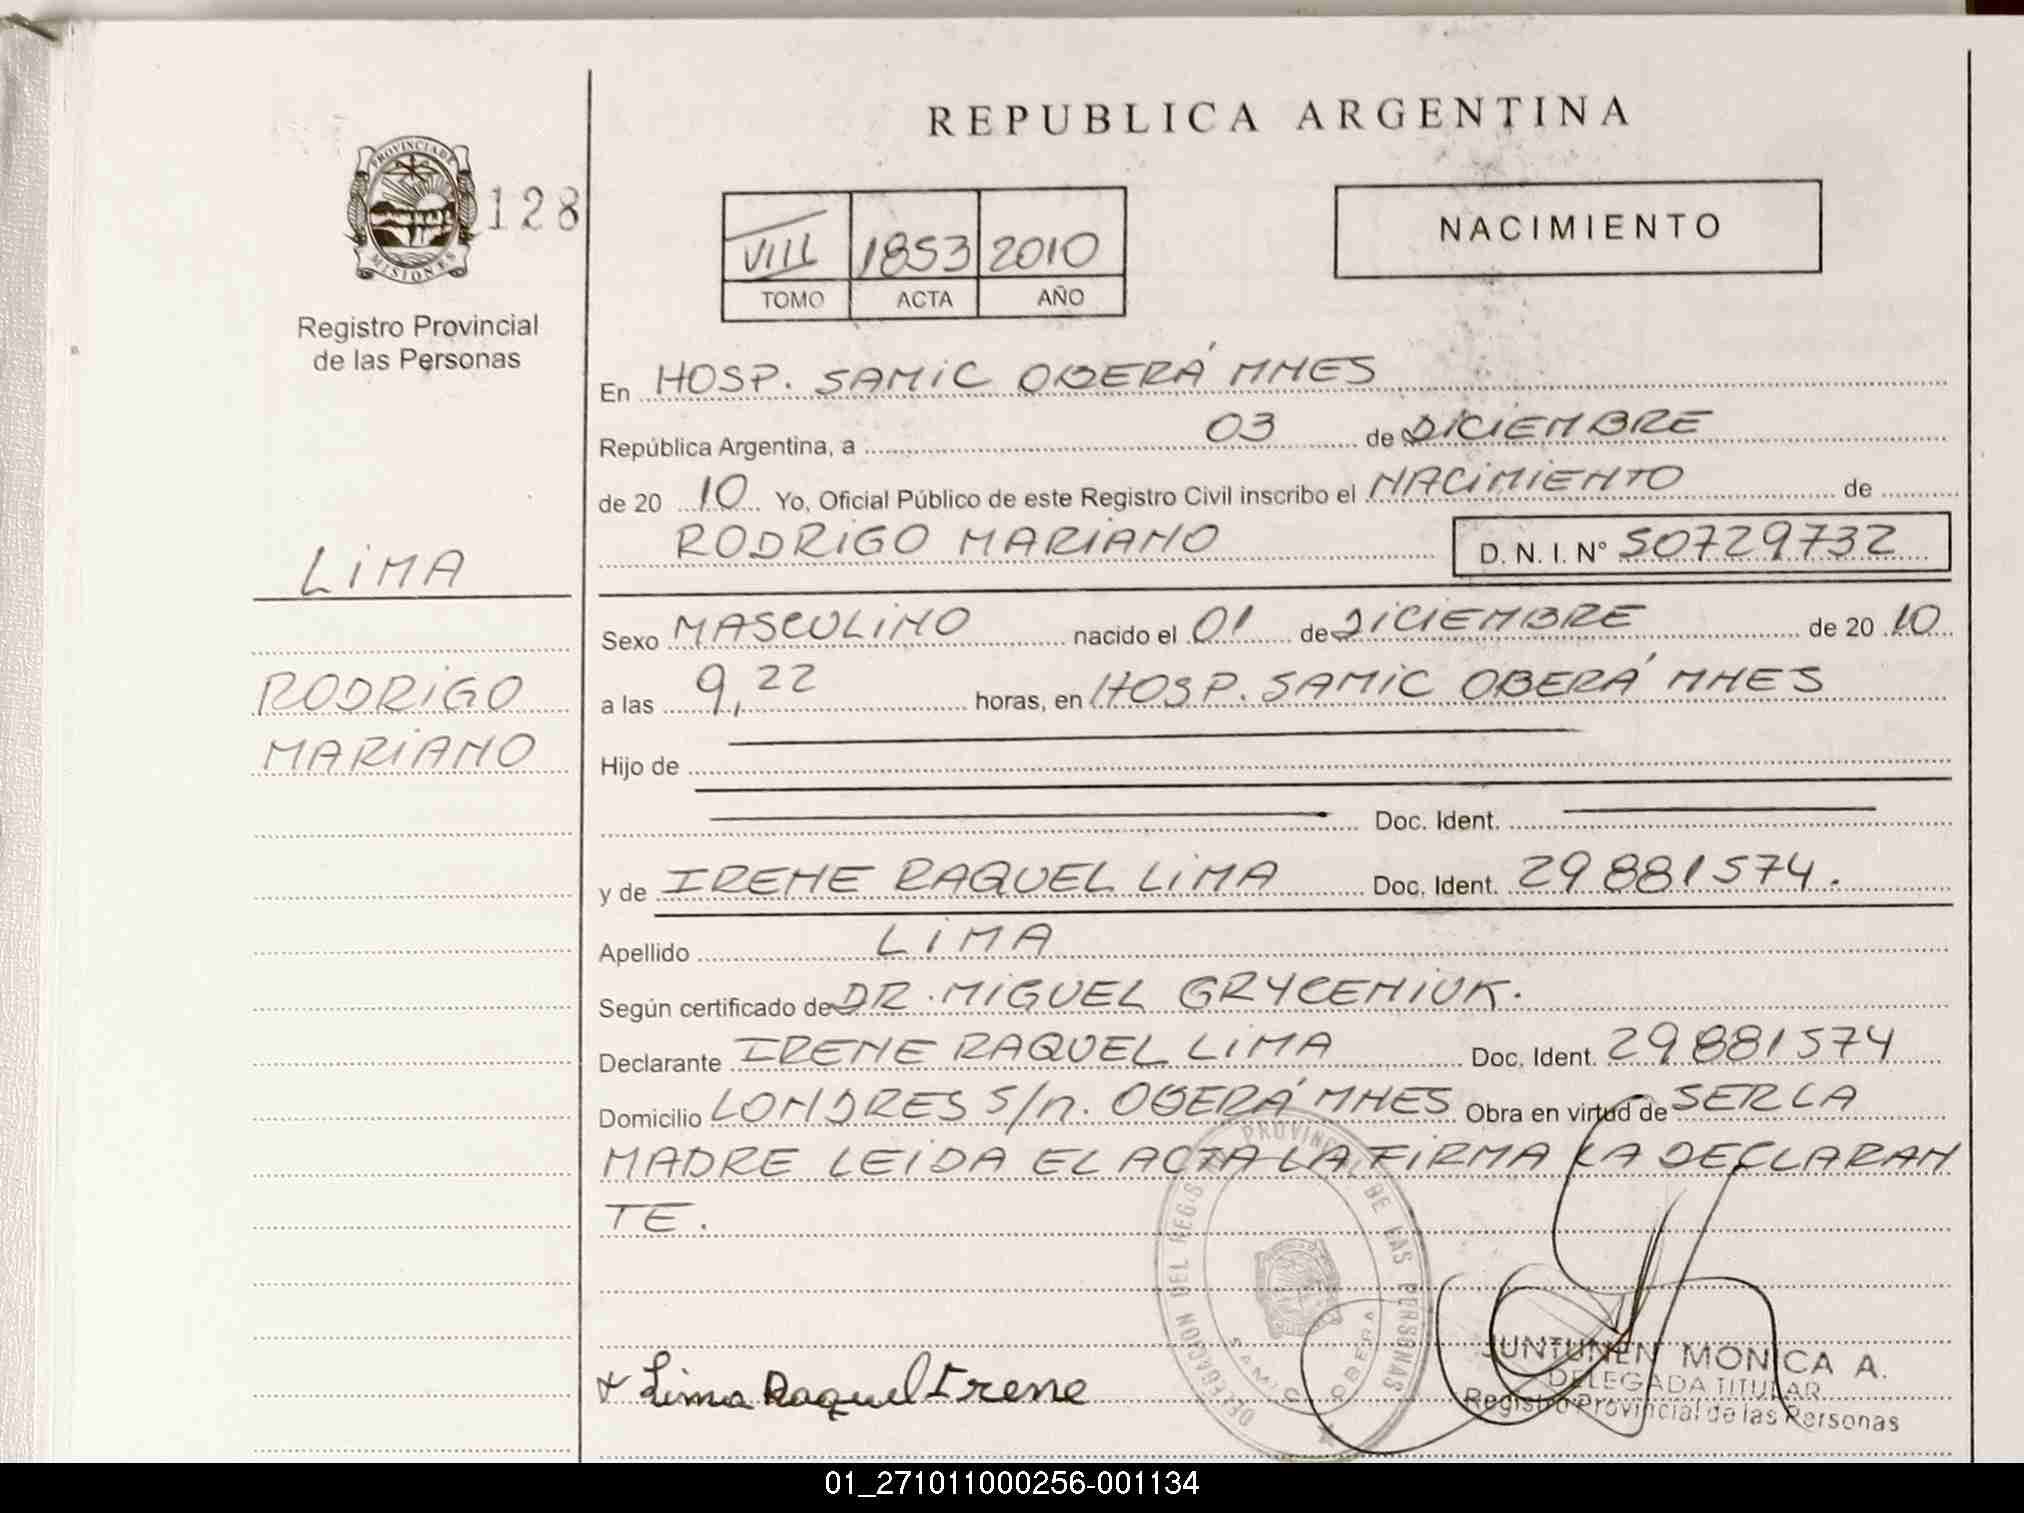 REPUBLICA ARGENTINA
PROVINCIA DE
MISIONES
128
Registro Provincial
de las Personas
VIII 1853 2010
TOMO ACTA AÑO
NACIMIENTO
En HOSP. SAMIC OBERÁ MNES
República Argentina, a 03 de DICIEMBRE
de 20 10 Yo, Oficial Público de este Registro Civil inscribo el NACIMIENTO de
RODRIGO MARIANO D. N. I. N° 50729732
LIMA
Sexo MASCULINO nacido el 01 de DICIEMBRE de 20 10
RODRIGO
a las 9,22 horas, en HOSP. SAMIC OBERÁ MNES
MARIANO
Hijo de
Doc. Ident.
y de IRENE RAQUEL LIMA Doc. Ident. 29 881 574.
Apellido LIMA
Según certificado de DR. MIGUEL GRYCENIUK.
Declarante IRENE RAQUEL LIMA Doc. Ident. 29 881 574
Domicilio LONDRES S/n. OBERÁ MNES Obra en virtud de SER LA
MADRE LEIDA EL ACTA LA FIRMA LA DECLARAN
TE.
DELEGACION DEL REGISTRO PROVINCIAL DE LAS PERSONAS
SAMIC OBERA
+ Lima Raquel Irene
JUNTUNEN MONICA A.
DELEGADA TITULAR
Registro Provincial de las Personas
01_271011000256-001134